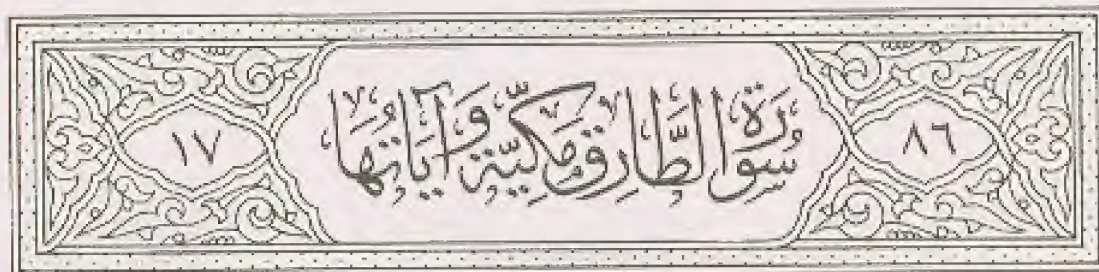 ٨٦ سُورَةُ الطَّارِقِ مَكِّيَّة وَآيَاتُهَا ١٧